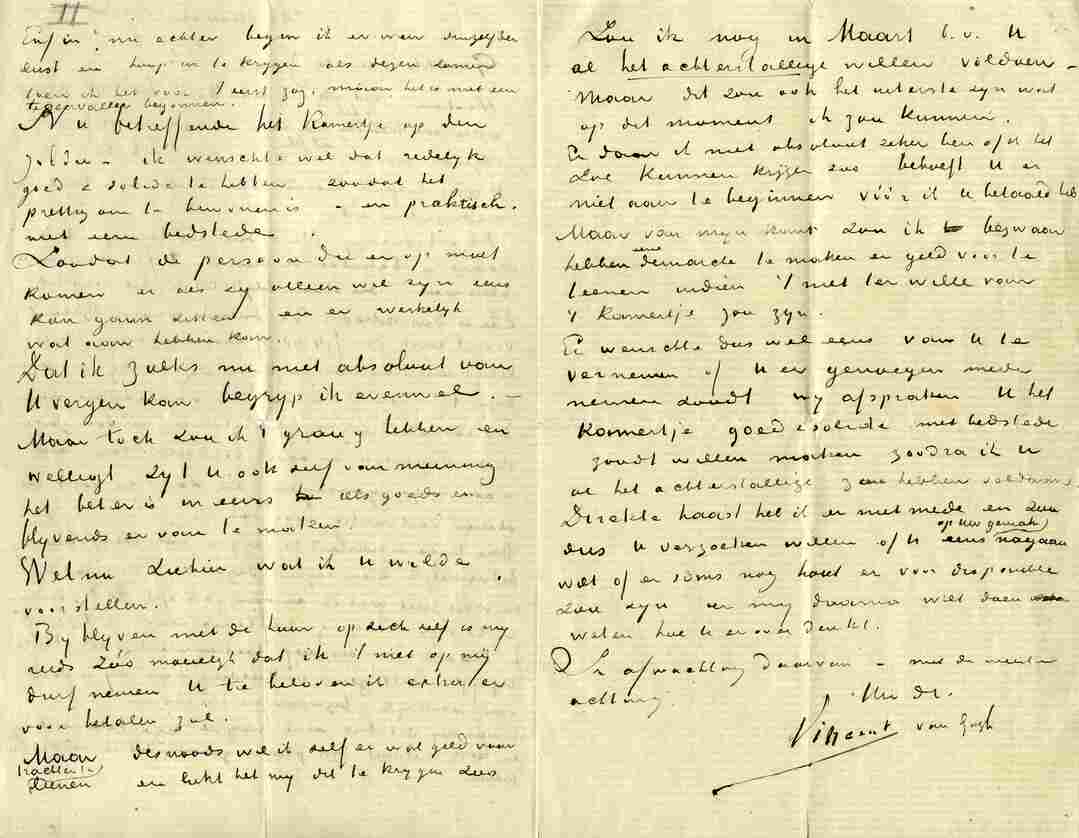 11
Enfin! nu echter begin ik er weer dienzelfden
lust en hoop in te krygen als degen
toen ik het voor 't eerst zag, het is met een
tegenvaller begonnen.
Nu betreffende het Kamertje op den
zolder – ik wenschte wel dat redelyk
goed & solide te hebben zoodat het
prettig om te bewonen is – en praktisch.
met eene bedstede.
Zoodat de persoon die er op moet
komen er als zy alleen wil zyn eens
kan gaan zitten en er werkelyk
wat aan hebben kan.
Dat ik zulks nu niet absoluut van
U vergen kan begryp ik evenwel. –
Maar toch zou ik 't graag hebben en
wellegt zyt U ook zelf van meening
het beter is ineens iets goeds en
blyvends er van te maken.
Welnu ziehier wat ik U wilde
voorstellen.
By blyven met de huur op zich zelf is my
reeds zóó moeielyk dat ik 't niet op my
durf nemen U te beloven ik extra er
voor betalen zal.
Maar desnoods wil ik zelf er wat geld voor
trachten te
leenen en lukt het my dit te krygen zoo
Zou ik nog in Maart b.v. U
al het achterstallige willen voldoen –
Maar dit zou ook het uiterste zyn wat
op dit moment ik zou kunnen.
En daar ik niet absoluut zeker ben of ik het
zoo behoeft U er
niet aan te beginnen vóór ik U betaald heb
Maar van myn kant zou ik bezwaar
hebben eene demarche te maken en geld voor te
leenen indien 't niet ter wille van
't kamertje zou zyn.
En wenschte dus wel eens van U te
vernemen of U er genoegen mede
nemen zoudt wy afspraken U het
Kamertje goed & solide met bedstede
zoudt willen maken zoodra ik U
al het achterstallige zou hebben voldaan.
Direkte haast heb ik er niet mede en zou
op Uw gemak
dus U verzoeken willen of U eens nagaan
wilt of er soms nog hout er voor disponible
zou zyn en my daarna wilt doen
weten hoe U er over denkt.
In afwachting daarvan – met de meeste
achting
Uw dr.
Vincent van Gogh